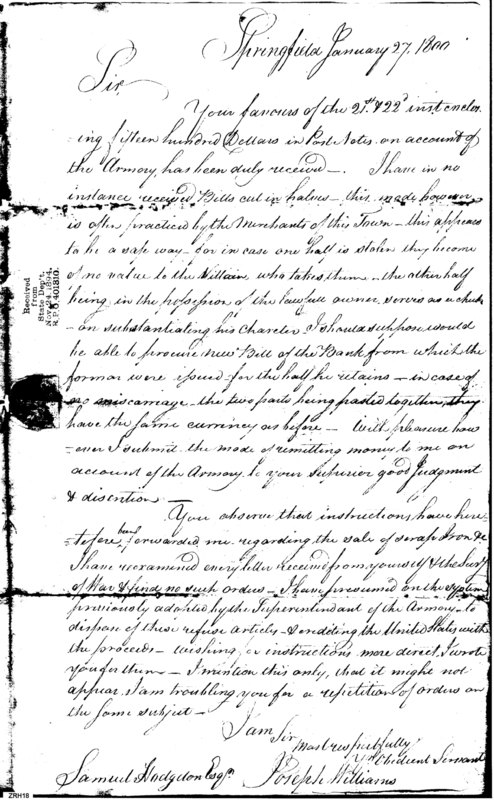 Springfield January 27, 1800
Sir
Your favours of the 21st & 22d inst. enclos-
ing fifteen hundred Dollars in Post Notes on account of
the Armory, has been duly received —. I have in no
instance received Bills cut in halves — this mode however
is often practiced by the Merchants of this Town — this appears
to be a safe way — for in case one half is stolen they become
of no value to the Villain who takes them — the other half
being in the possession of the lawfull owner, serves as a check
— on substantiating his Character I should suppose would
be able to procure new Bill of the Bank from which the
former were issued for the half he retains — in case of
no miscarriage the two parts being pasted together, they
have the same currency as before — With pleasure how
-ever I submit the mode of remitting money to me on
account of the Armory, to your Superior good Judgment
& discretion —
You observe that instructions have here
-tofore been forwarded me regarding the sale of scrap Iron &c
I have reexamined every letter received from yourself & the Secy
of War & find no such orders — I have presumed on the system
previously adopted by the Superintendant of the Armory — to
dispose of these refuse articles — & crediting the United States with
the proceeds — wishing for instructions more direct, I wrote
you for them — I mention this only, that it might not
appear I am troubling you for a repetition of orders on
the same subject —
I am Sir
most respectfully
Yr Obedient Servant
Joseph Williams
Samuel Hodgdon Esqr.
Received
from
State Dep't.
Nov. 24 1894.
R.P. 401810.
ZRH18